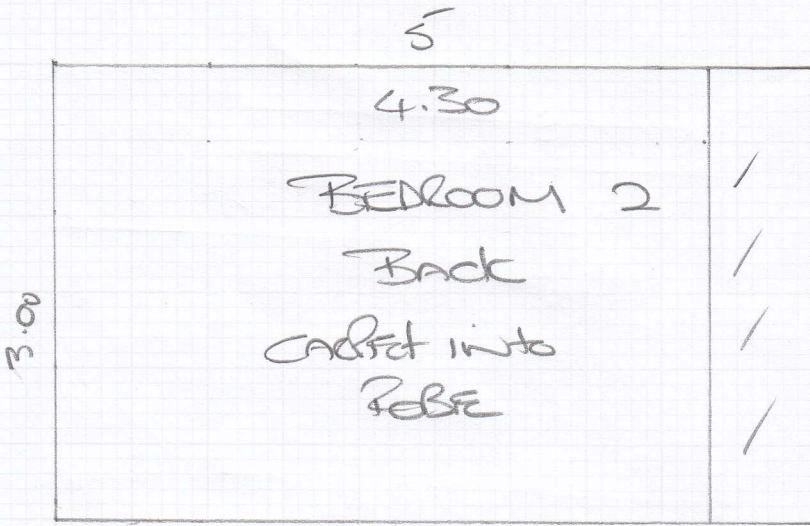 5
4.30
BEDROOM 2
BACK
CARPET INTO
ROBE
3.00